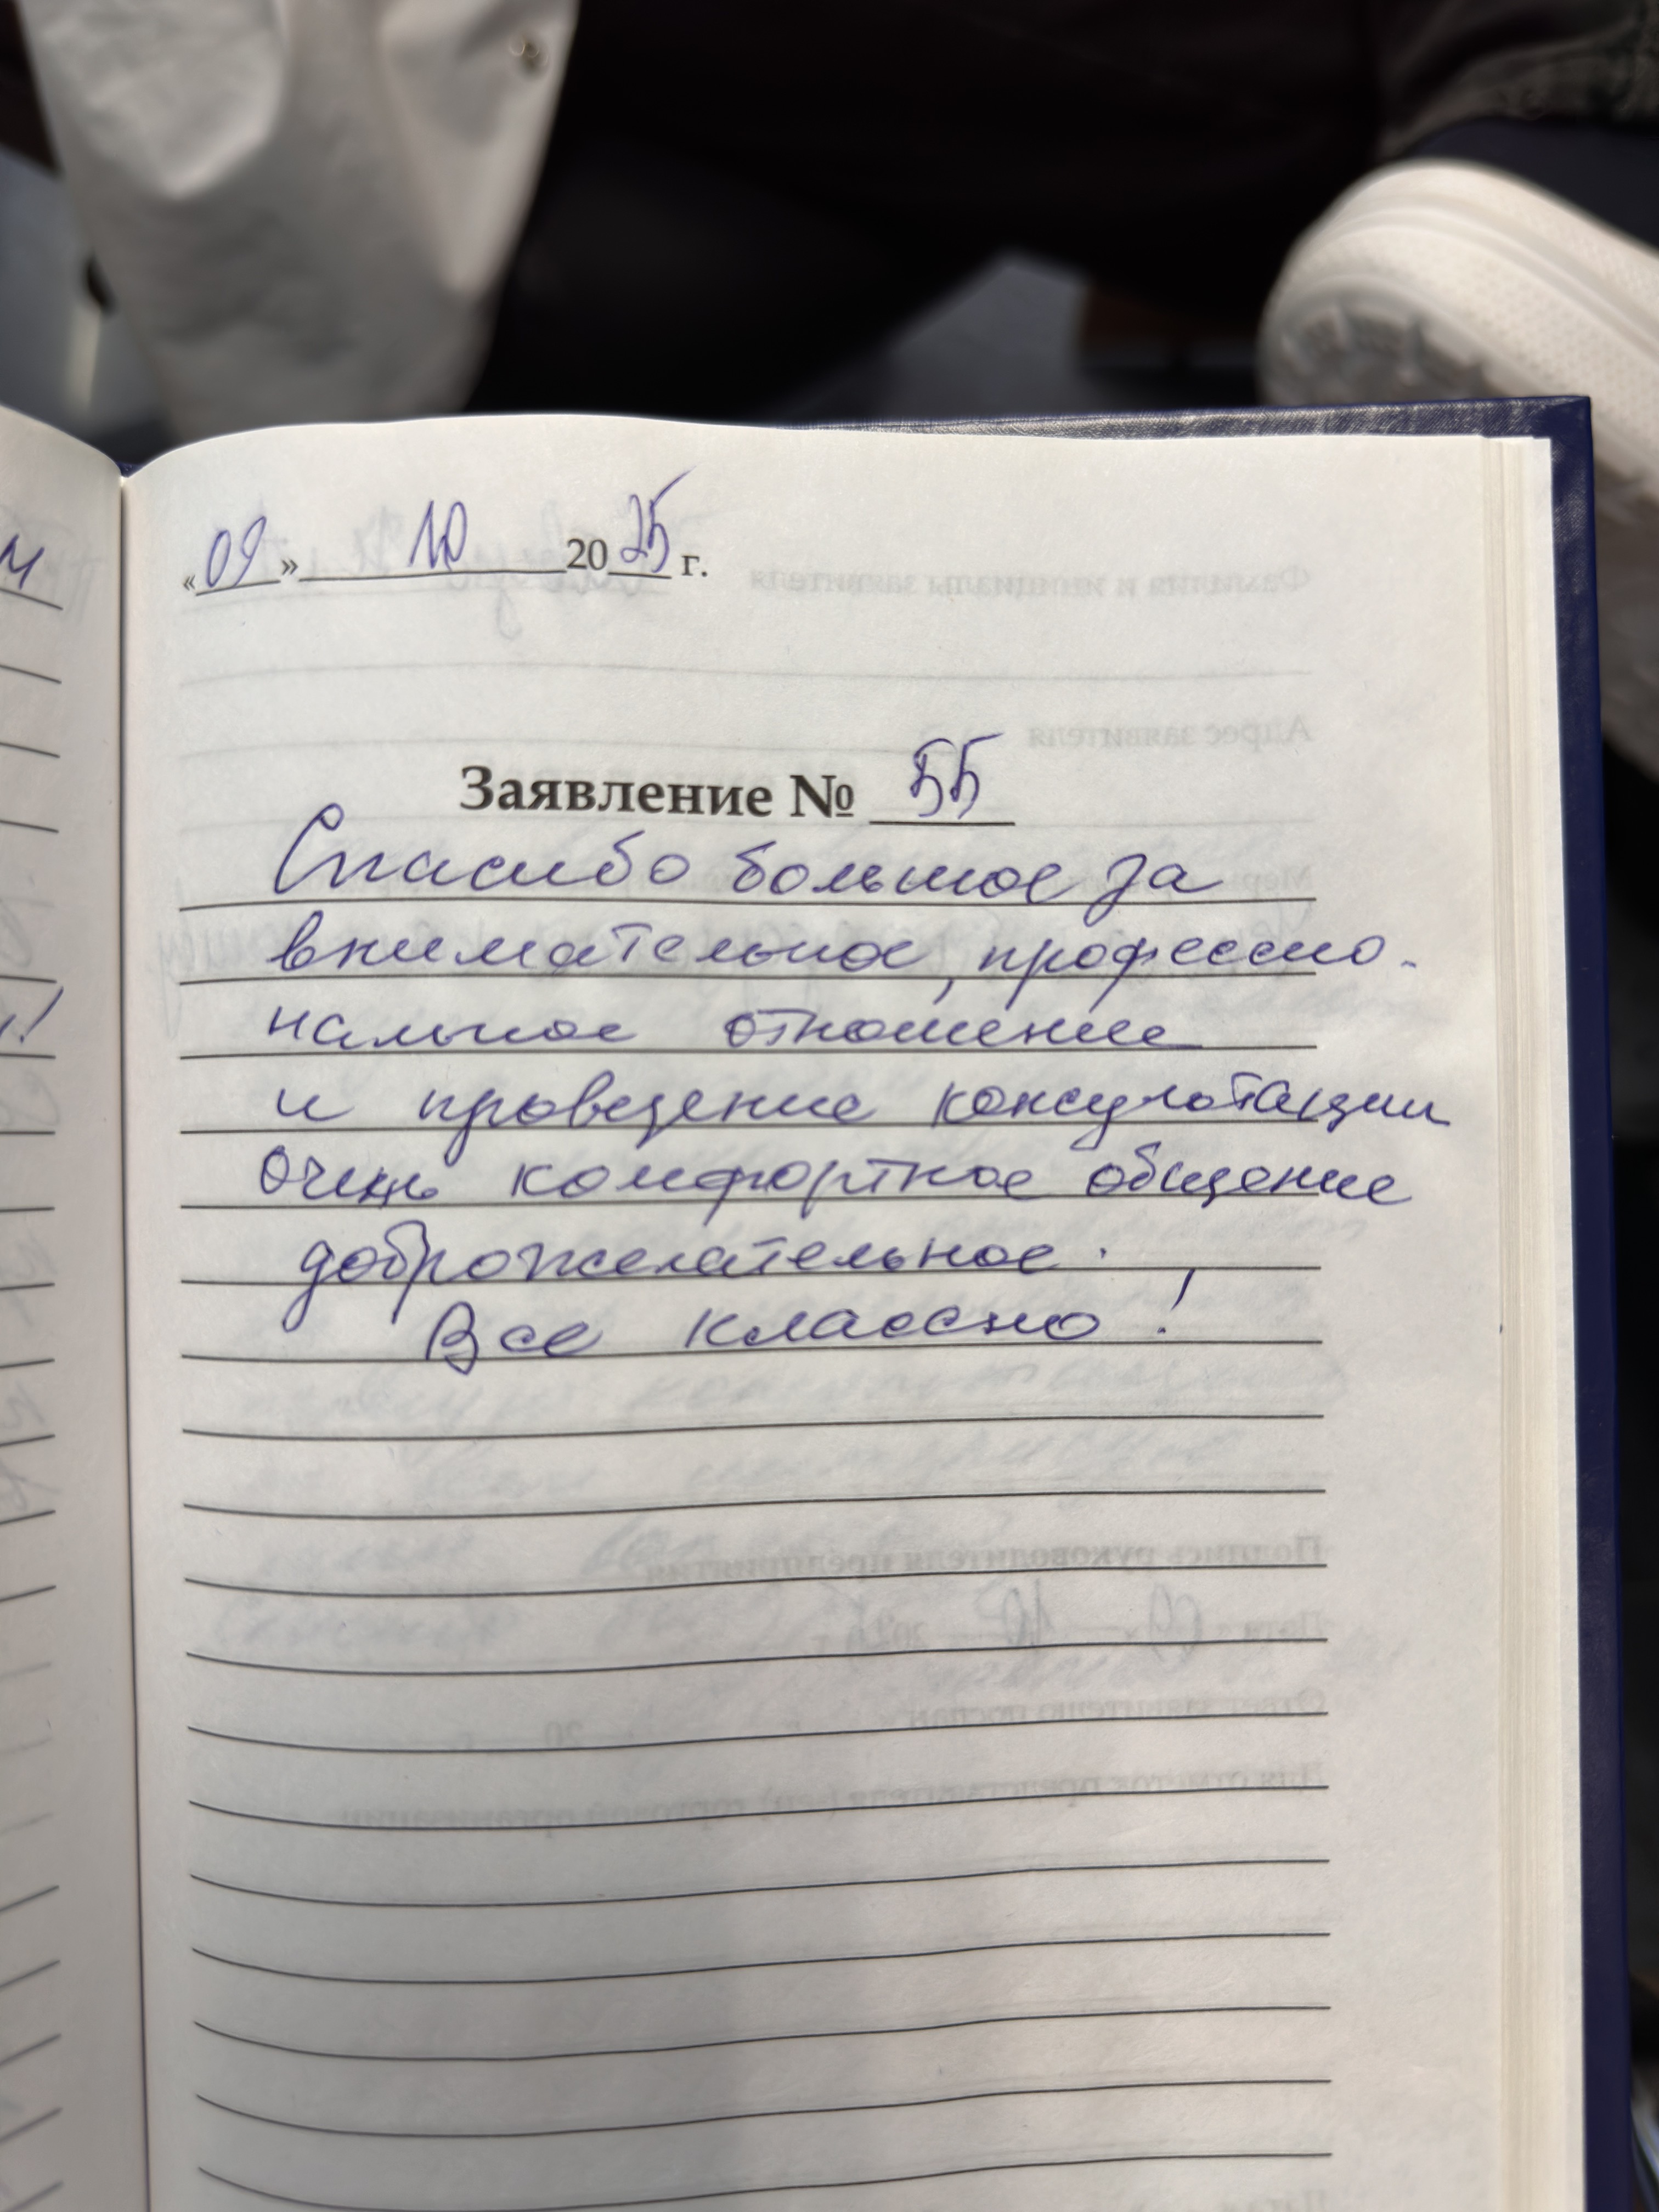 «09» 10 2025 г.
Заявление № 55
Спасибо большое за
внимательное, профессио-
нальное отношение
и проведение консультации
Очень комфортное общение
доброжелательное.
Все классно!